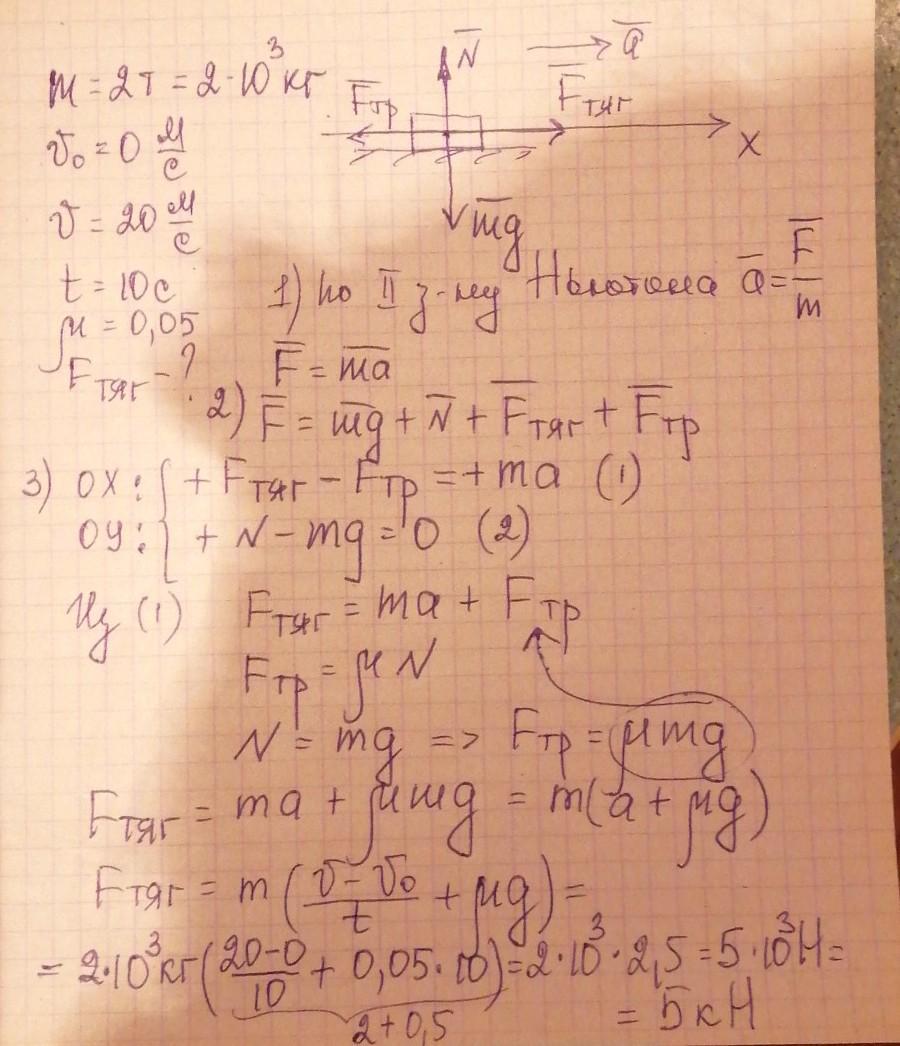 m = 2т = 2·10³ кг
v₀ = 0 м/с
v = 20 м/с
t = 10с
μ = 0,05
Fтяг - ?
N̅
a̅
F̅тр
F̅тяг
x
m̅g̅
1) по II з-ну Ньютона a̅ = F̅/m
F̅ = m̅a̅
2) F̅ = m̅g̅ + N̅ + F̅тяг + F̅тр
3) OX: { + Fтяг - Fтр = + ma (1)
OY: { + N - mg = 0 (2)
Из (1) Fтяг = ma + Fтр
Fтр = μN
N = mg => Fтр = μmg
Fтяг = ma + μmg = m(a + μg)
Fтяг = m((v - v₀)/t + μg) =
= 2·10³кг((20-0)/10 + 0,05·10) = 2·10³·2,5 = 5·10³Н =
2 + 0,5
= 5кН